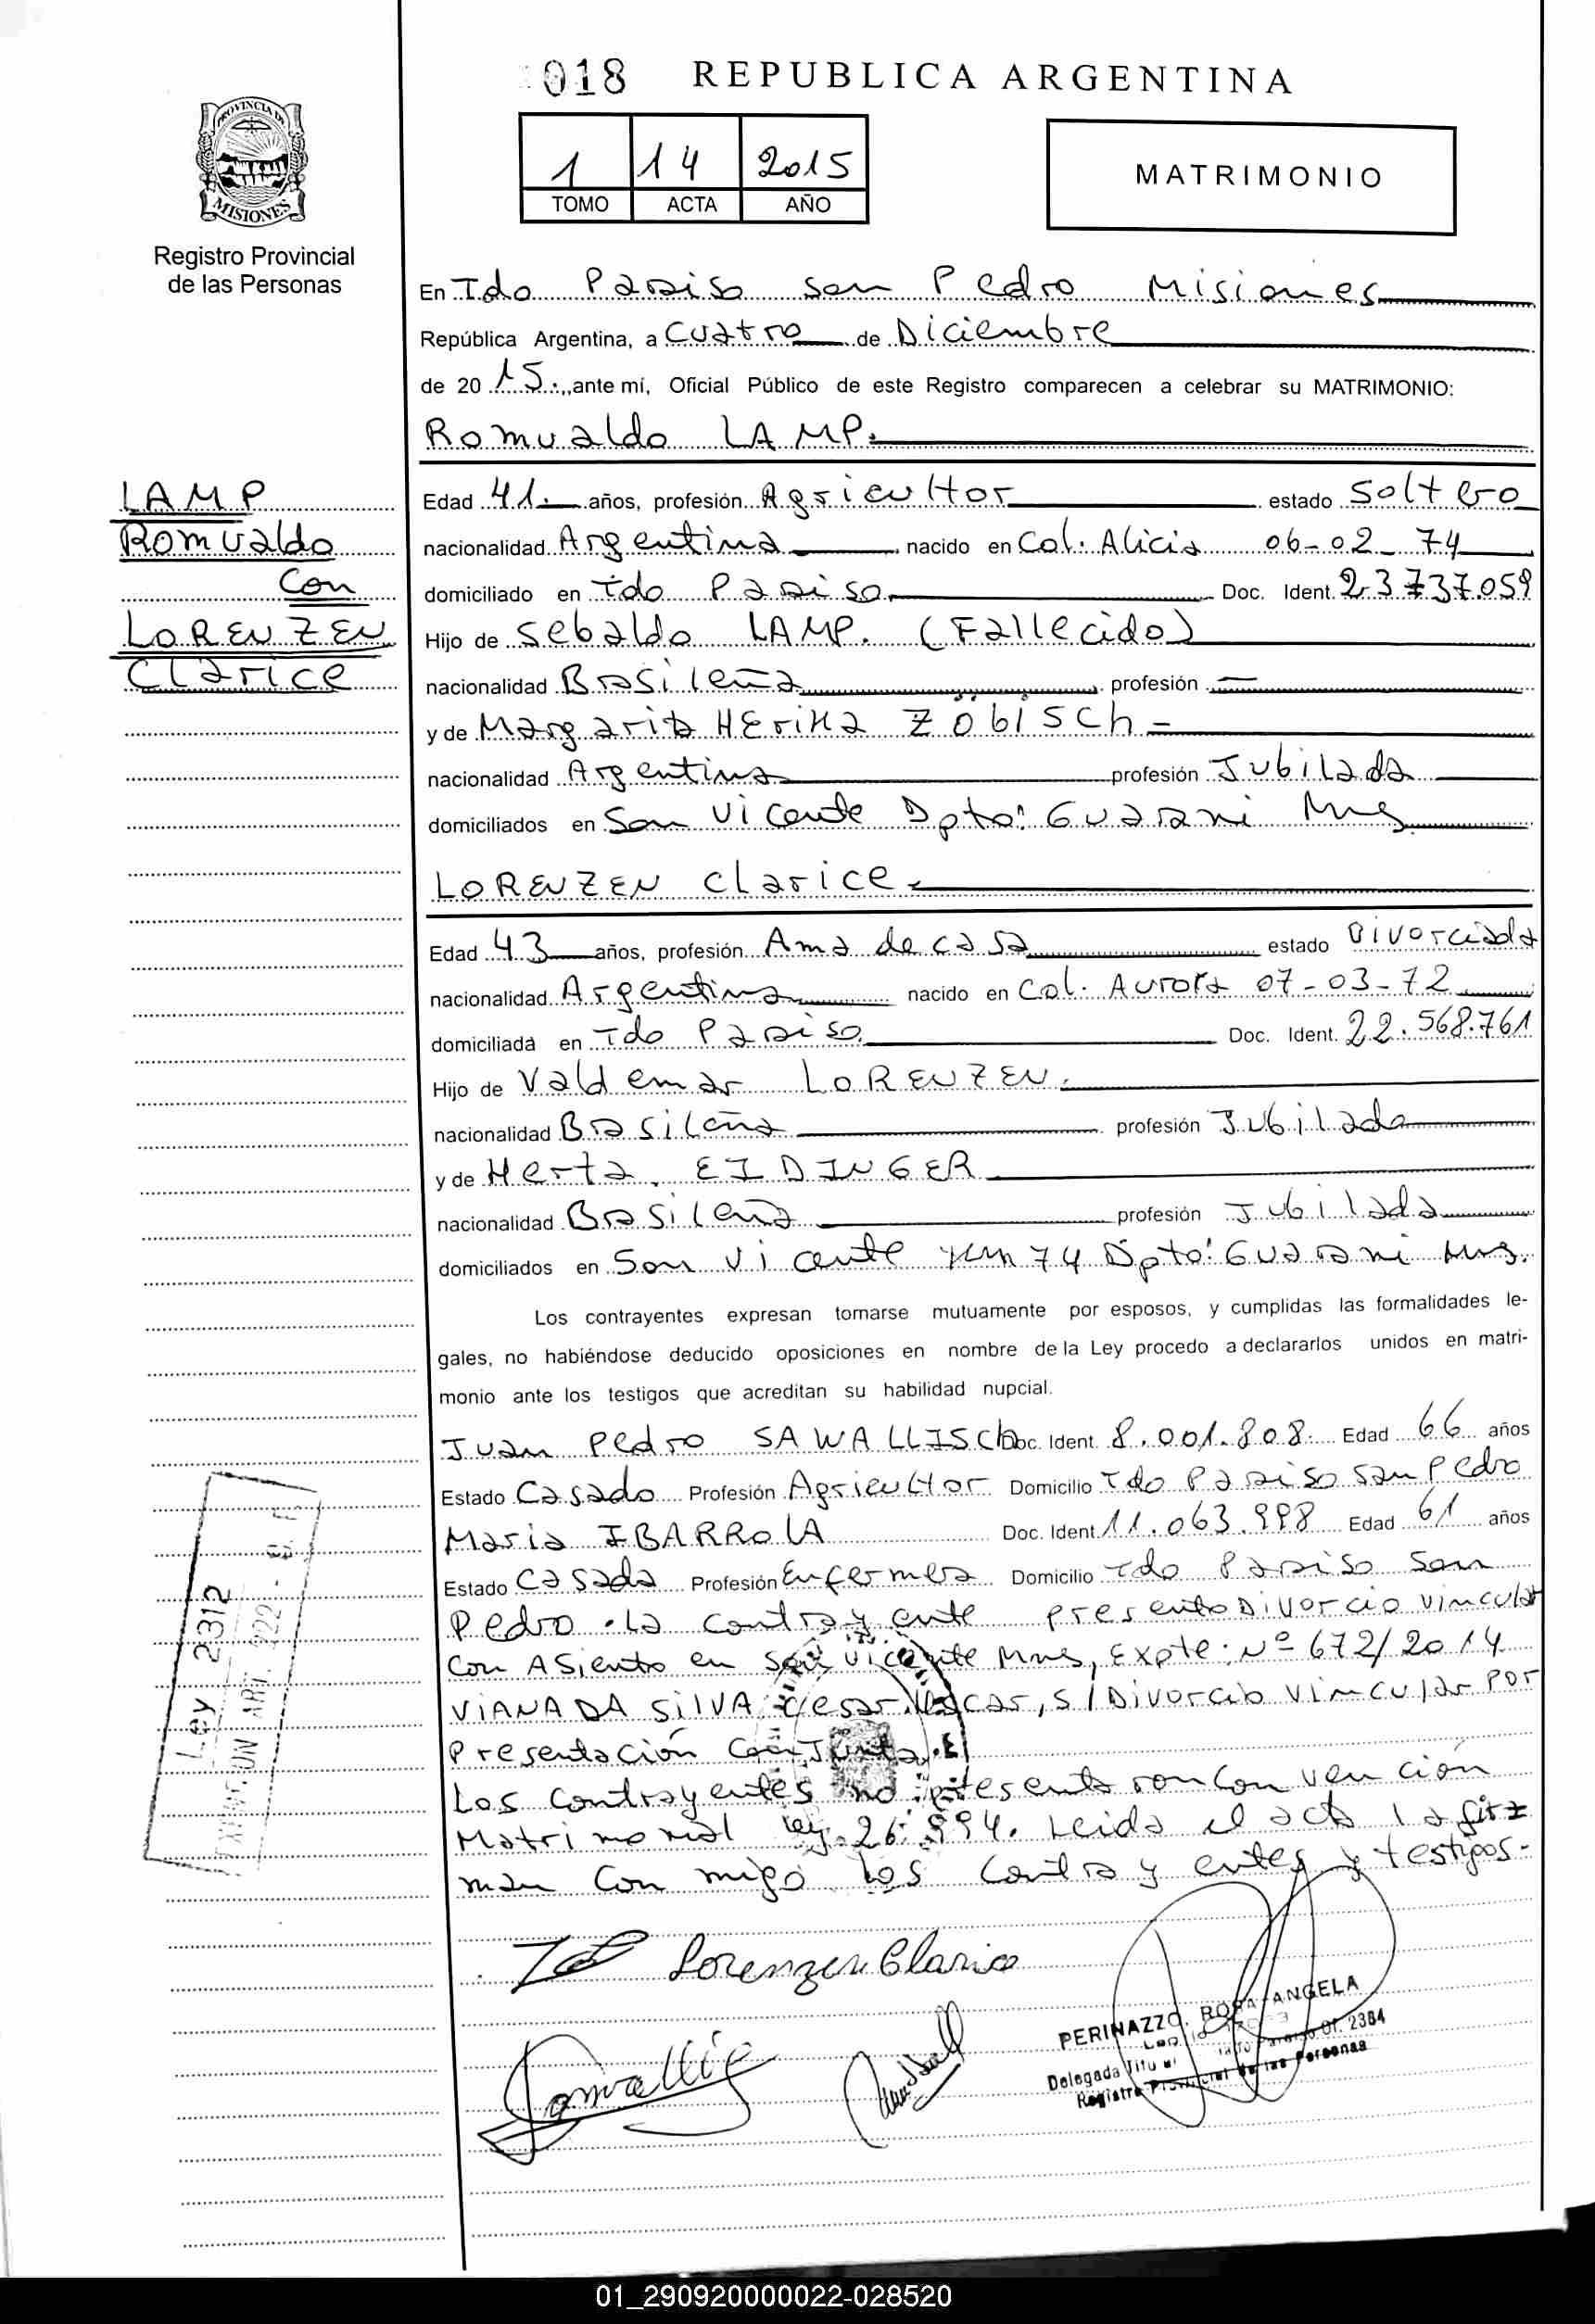 018 REPUBLICA ARGENTINA
PROVINCIA DE
MISIONES
1 14 2015
TOMO ACTA AÑO
MATRIMONIO
Registro Provincial
de las Personas
En Tdo Paraiso San Pedro Misiones
República Argentina, a Cuatro de Diciembre
de 20 15., ante mí, Oficial Público de este Registro comparecen a celebrar su MATRIMONIO:
Romualdo LAMP.
LAMP
Romualdo
Con
LORENZEN
Clarice
Edad 41. años, profesión Agricultor estado Soltero
nacionalidad Argentina nacido en Col. Alicia 06-02-74
domiciliado en Tdo Paraiso Doc. Ident. 23737.059
Hijo de Sebaldo LAMP. (Fallecido)
nacionalidad Brasileña profesión —
y de Margarita HEriKa ZöbiSch -
nacionalidad Argentina profesión Jubilada
domiciliados en San Vicente Dpto: Guarani Mnes
LORENZEN Clarice
Edad 43 años, profesión Ama de casa estado Divorciada
nacionalidad Argentina nacido en Col. Aurora 07-03-72
domiciliada en Tdo Paraiso Doc. Ident. 22.568.761
Hijo de Valdemar LORENZEN.
nacionalidad Brasileña profesión Jubilado
y de Herta EIDINGER
nacionalidad Brasileña profesión Jubilada
domiciliados en San Vicente Km 74 Dpto: Guarani Mns.
Los contrayentes expresan tomarse mutuamente por esposos, y cumplidas las formalidades le-
gales, no habiéndose deducido oposiciones en nombre de la Ley procedo a declararlos unidos en matri-
monio ante los testigos que acreditan su habilidad nupcial.
Juan Pedro SAWALLISCh Doc. Ident. 8.001.808. Edad 66 años
Estado Casado Profesión Agricultor Domicilio Tdo Paraiso San Pedro
Maria IBARROLA Doc. Ident. 11.063.998 Edad 61 años
Estado Casada Profesión Enfermera Domicilio Tdo Paraiso San
Pedro. La contrayente presento Divorcio vincular
Con Asiento en San Vicente Mnes, Expte: Nº 672/2014
VIANA DA SILVA Cesar, S/Divorcio Vincular Por
Presentación Conjunta.
Los contrayentes no presentaron Convención
Matrimonial ley. 26.994. Leida el acta la fir=
man Con migo los Contrayentes y testigos-
Ley 2312
ART. 222
Lorenzen Clarice
PERINAZZO, ROSA ANGELA
Of. 2384
Delegada Titular
Registro Provincial de las Personas
01_290920000022-028520